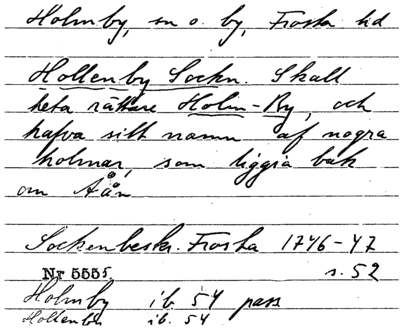 Holmby, sn o. by, Frosta hd
Hollenby Sockn. Skall
heta rättare Holm-By, och
hafva sitt namn af några
holmar, som liggia bak
om Åån
Sockenbeskr. Frosta 1746-47
Nr 5555. s. 52
Holmby ib. 54 pass
Hollenby ib. 54